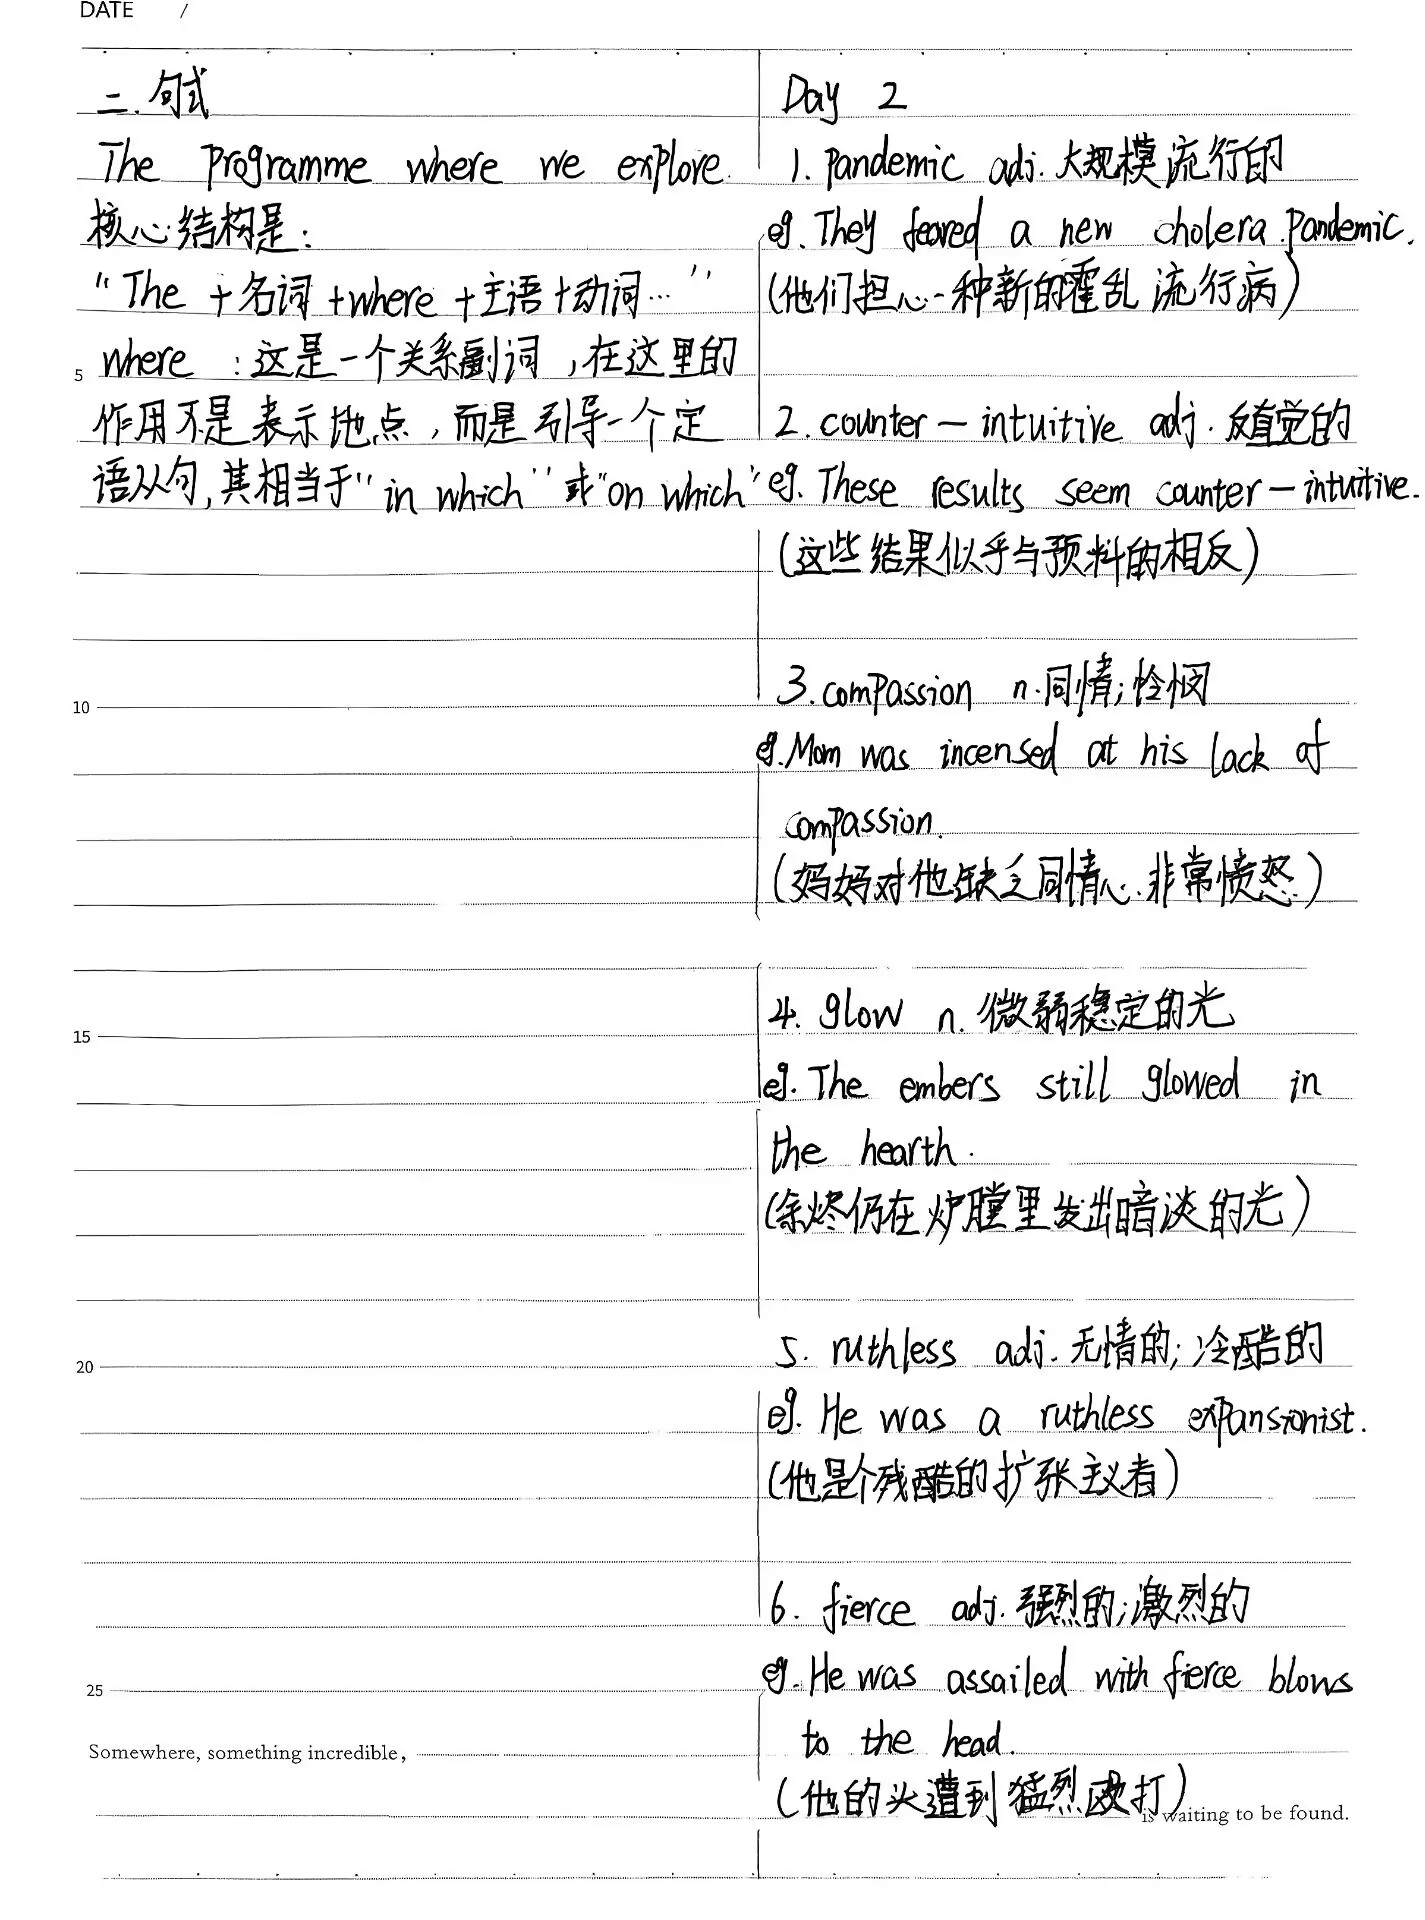 DATE /
二.句式
The programme where we explore.
核心结构是:
“The +名词+where+主语+动词…”
where :这是一个关系副词,在这里的
作用不是表示地点,而是引导一个定
语从句,其相当于“in which”或“on which”
5
10
15
20
25
Somewhere, something incredible,
Day 2
1. pandemic adj. 大规模流行的
eg. They feared a new cholera pandemic.
(他们担心一种新的霍乱流行病)
2. counter-intuitive adj. 反直觉的
eg. These results seem counter-intuitive.
(这些结果似乎与预料的相反)
3. compassion n.同情;怜悯
eg. Mom was incensed at his lack of
compassion.
(妈妈对他缺乏同情心非常愤怒)
4. glow n. 微弱稳定的光
eg. The embers still glowed in
the hearth.
(余烬仍在炉膛里发出暗淡的光)
5. ruthless adj. 无情的;冷酷的
eg. He was a ruthless expansionist.
(他是个残酷的扩张主义者)
6. fierce adj. 强烈的;激烈的
eg. He was assailed with fierce blows
to the head.
(他的头遭到猛烈殴打)
is waiting to be found.